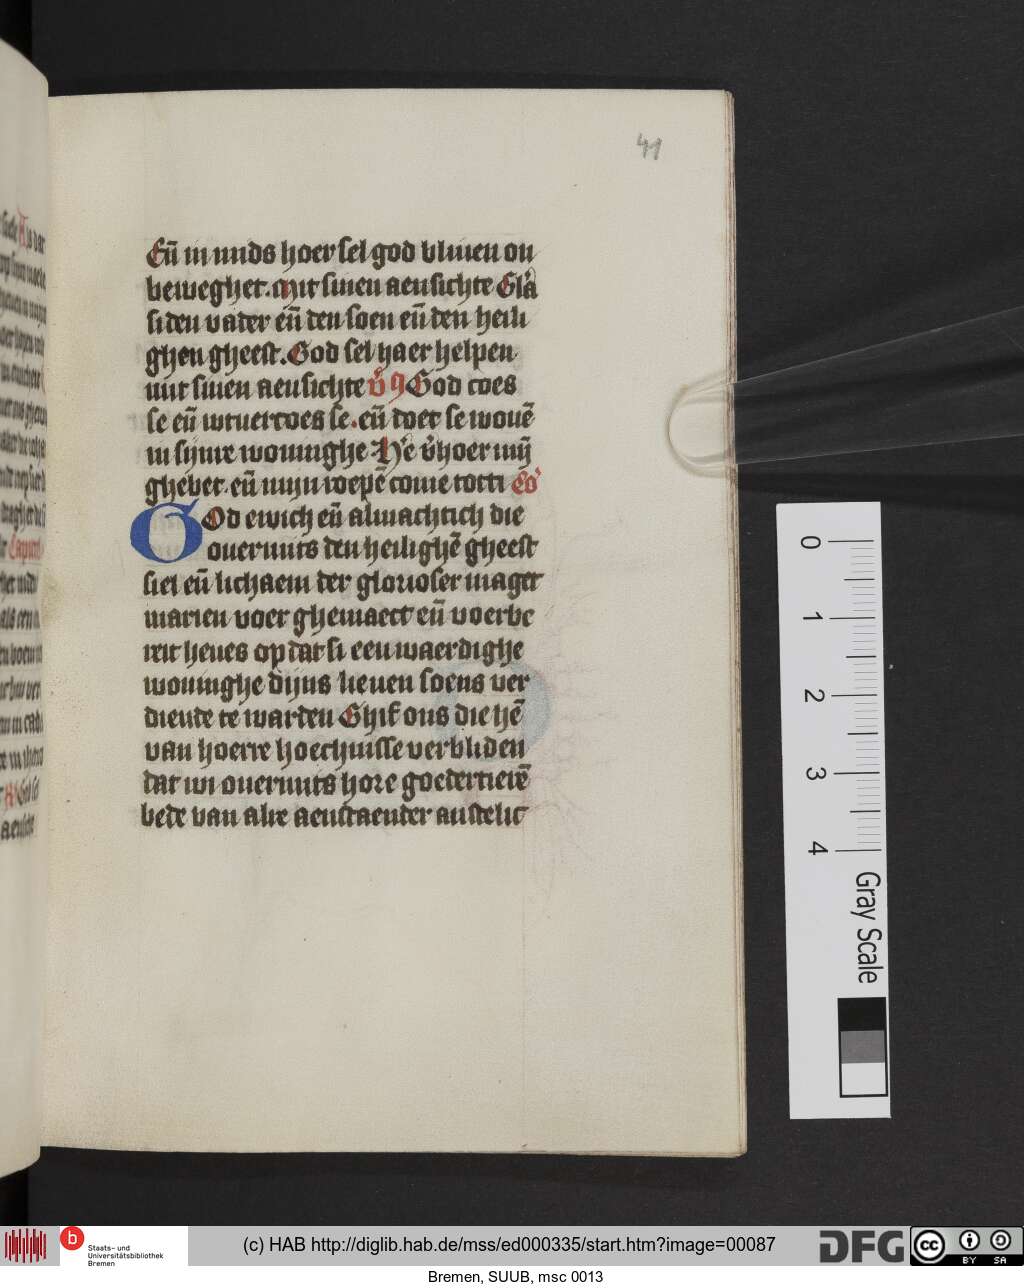 41
Eñ in mids hoer sel god bliuen on
beweghet. mit sinen aensichte Glā
si den vader eñ den soen eñ den heili
ghen gheest. God sel haer helpen
mit sinen aensichte v̉ꝯ God coes
se eñ wtuercoes se. eñ doet se wonē
in sijnre woninghe He v̉hoer mij̄
ghebet. eñ mijn roepē come totti Co̓
God ewich eñ almachtich die
ouermits den heilighē gheest
siel eñ lichaem der glorioser maget
marien voer ghemaect eñ voerbe
reit heues op dat si een waerdighe
woninghe dijns lieuen soens ver
diende te warden Ghif ons die hē
van hoerre hoechnisse verbliden
dat wi ouermits hore goedertierē
bede van alre aenstaender anstelic
0
1
2
3
4
Gray Scale
b
Staats- und
Universitätsbibliothek
Bremen
(c) HAB http://diglib.hab.de/mss/ed000335/start.htm?image=00087
DFG
cc
BY SA
Bremen, SUUB, msc 0013